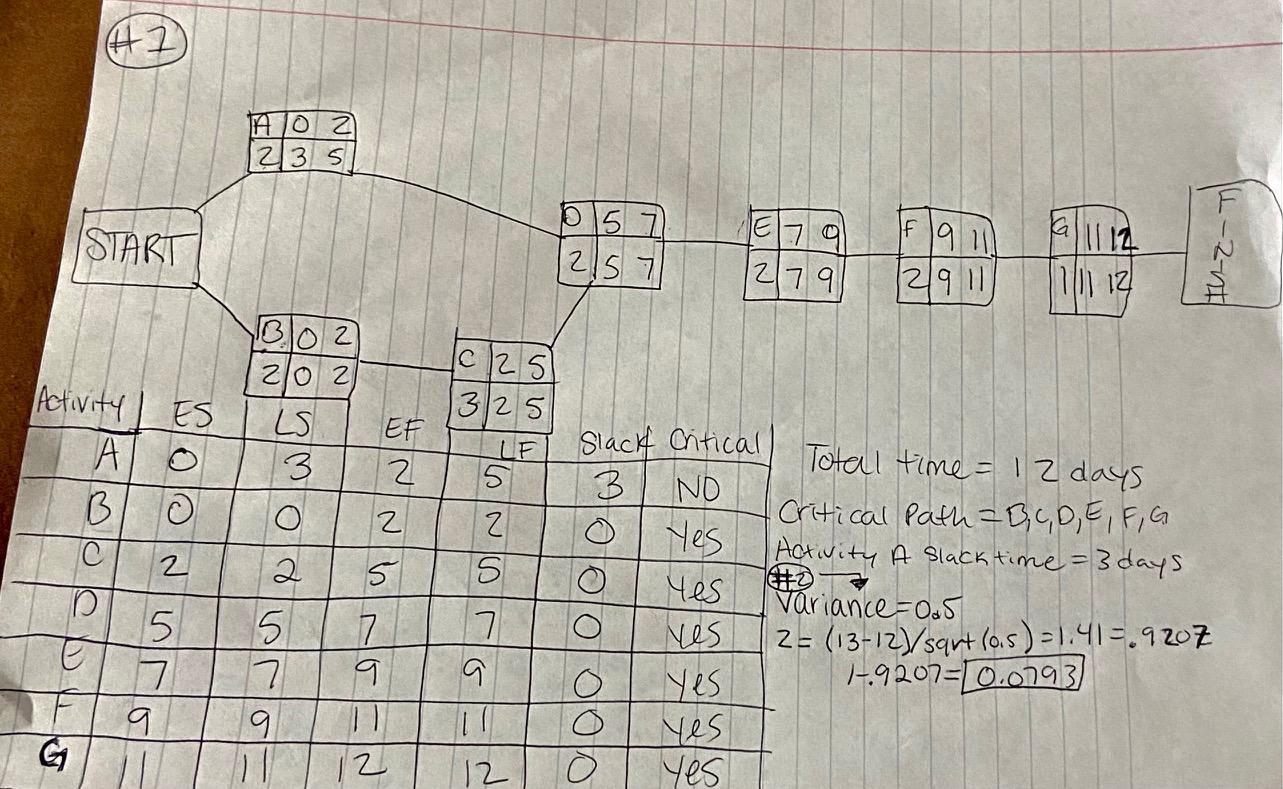 #1
A 0 2
2 3 5
START
D 5 7
2 5 7
E 7 9
2 7 9
F 9 11
2 9 11
G 11 12
1 11 12
B 0 2
2 0 2
C 2 5
3 2 5
Activity ES LS EF LF Slack Critical
A 0 3 2 5 3 NO
B 0 0 2 2 0 Yes
C 2 2 5 5 0 Yes
D 5 5 7 7 0 Yes
E 7 7 9 9 0 Yes
F 9 9 11 11 0 Yes
G 11 11 12 12 0 Yes
Total time = 12 days
Critical Path = B,C,D,E,F,G
Activity A Slack time = 3 days
#2
Variance=0.5
Z= (13-12)/sqrt(0.5)=1.41=.9207
1-.9207=0.0793